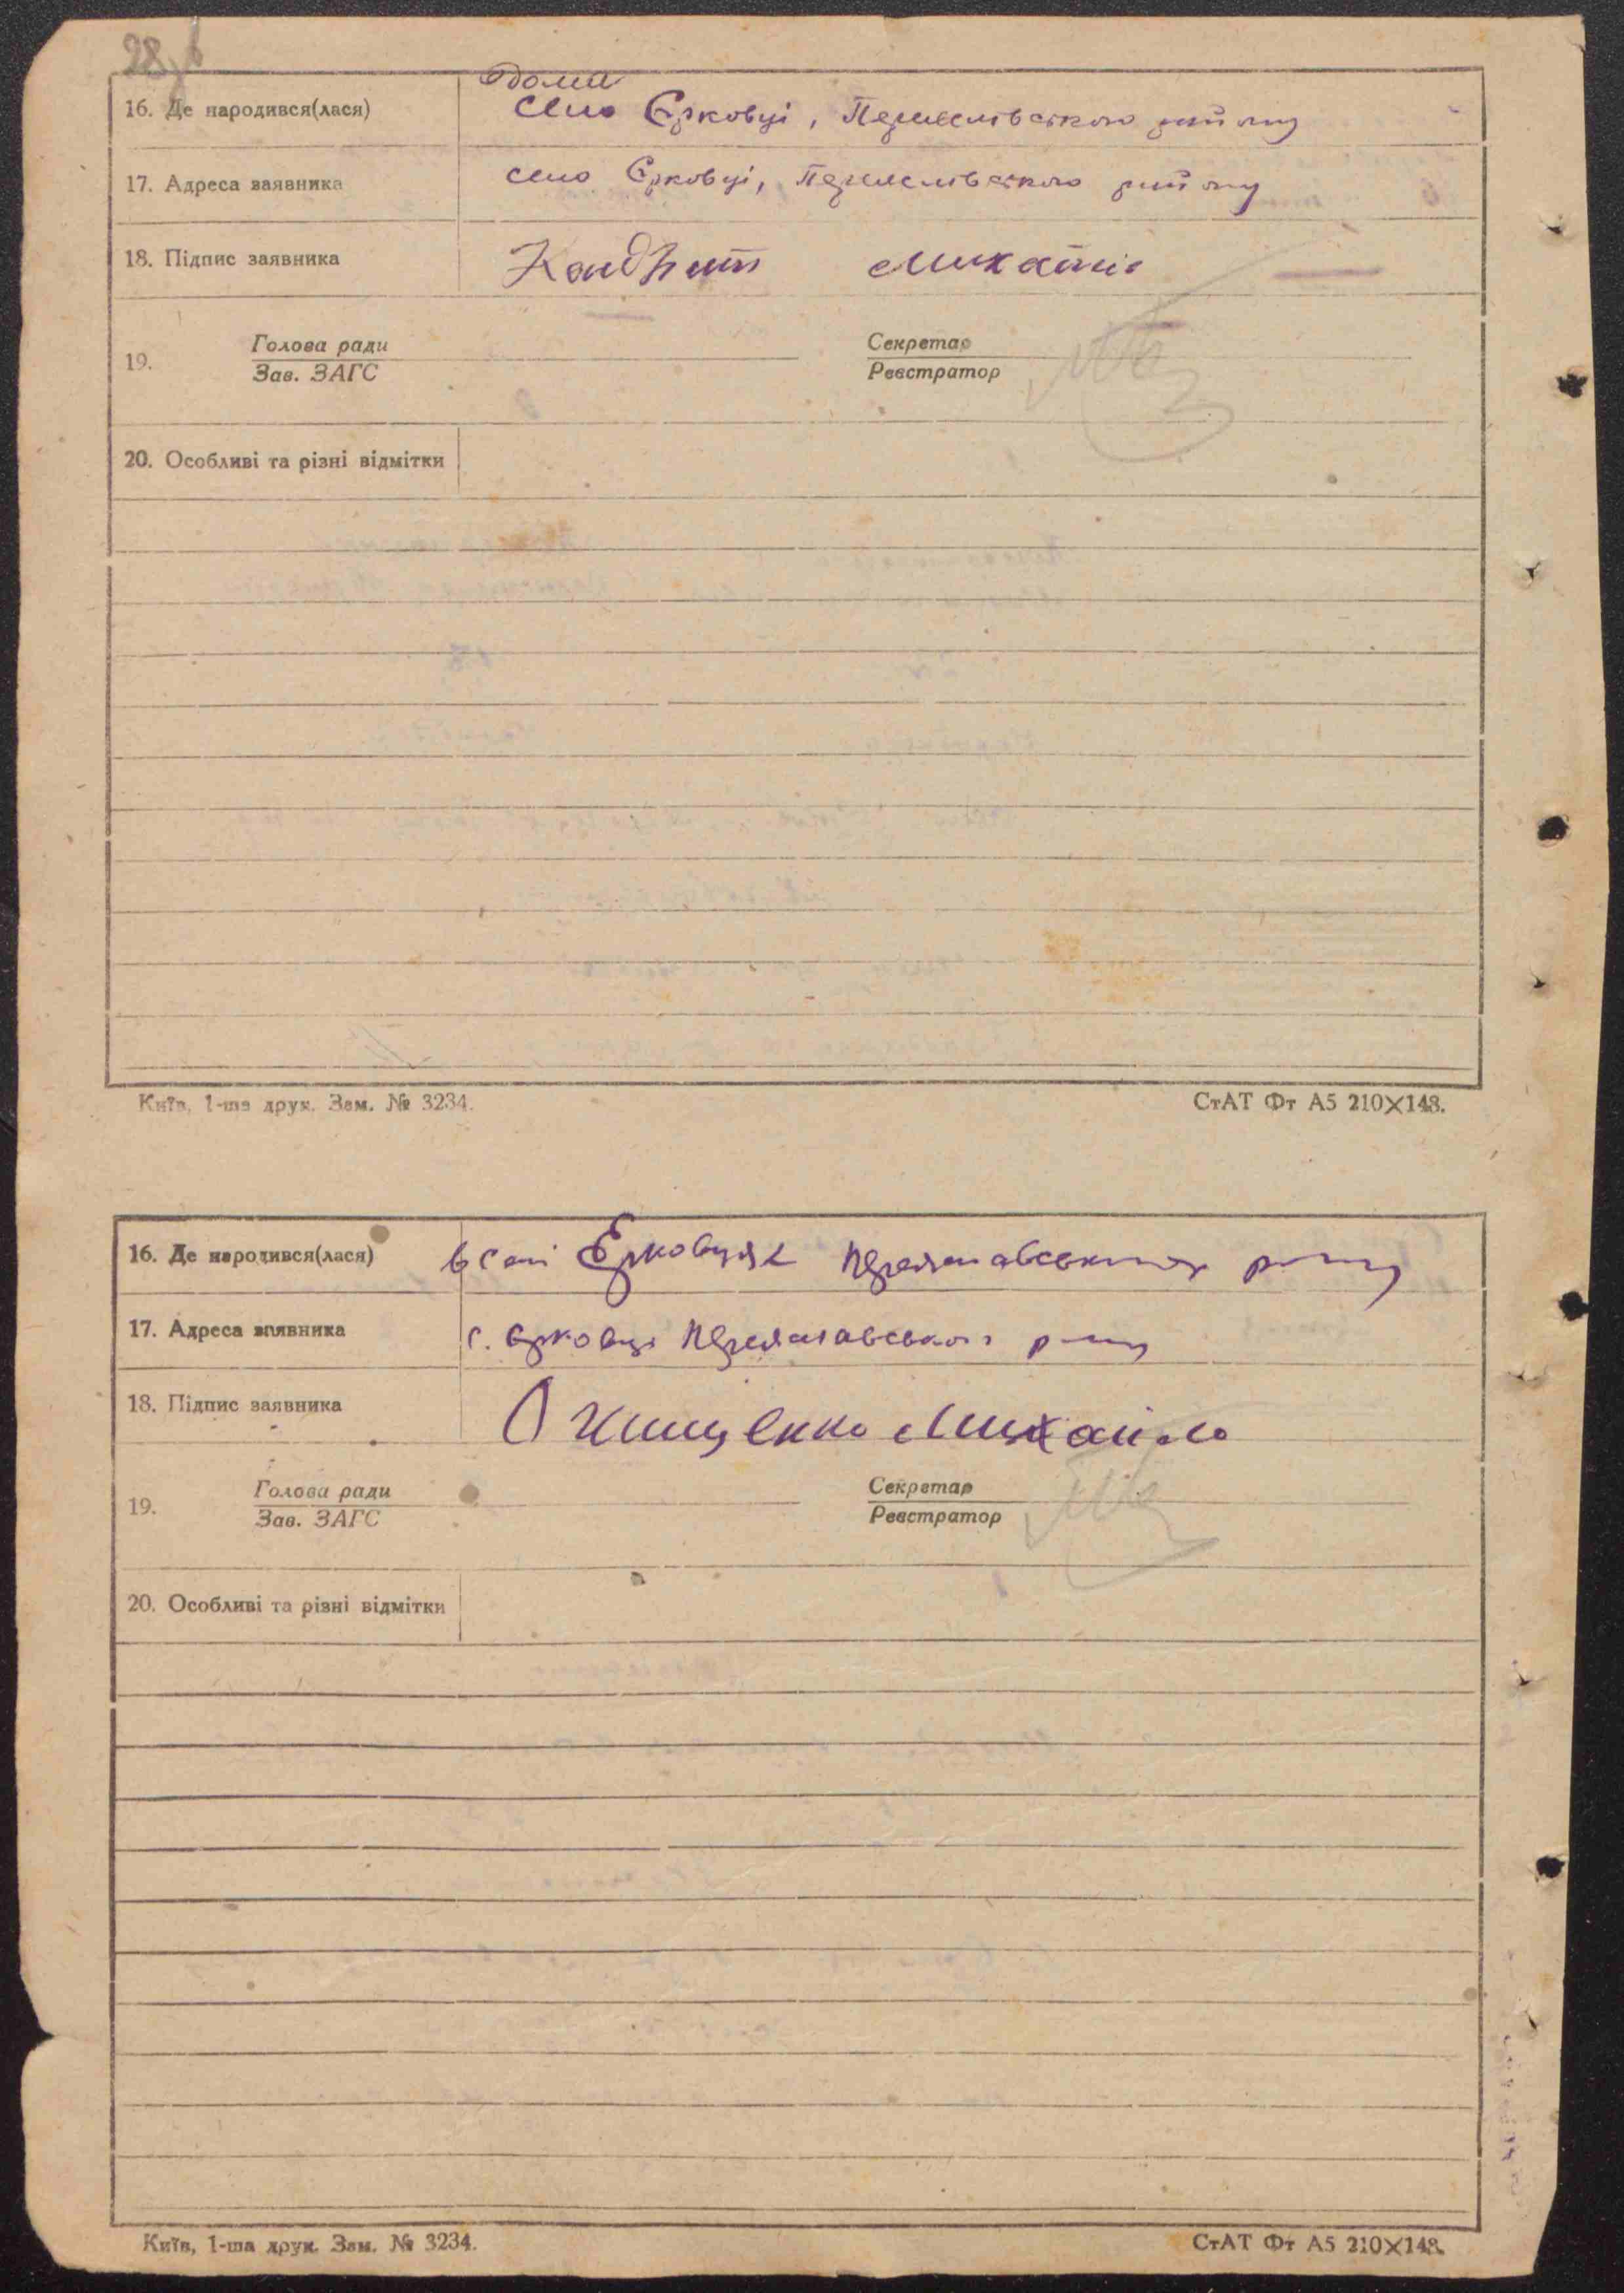 28
дома
16. Де народився(лася) село Єрковці, Переяславського району
17. Адреса заявника село Єрковці, Переяславського району
18. Підпис заявника Михайло
19. Голова ради Секретар
Зав. ЗАГС Реєстратор
20. Особливі та різні відмітки
Київ, 1-ша друк. Зам. № 3234. СтАТ Фт А5 210×148.
16. Де народився(лася) в селі Єрковцях Переяславського р-ну
17. Адреса заявника с. Єрковці Переяславського р-ну
18. Підпис заявника Онищенко Михайло
19. Голова ради Секретар
Зав. ЗАГС Реєстратор
20. Особливі та різні відмітки
Київ, 1-ша друк. Зам. № 3234. СтАТ Фт А5 210×148.